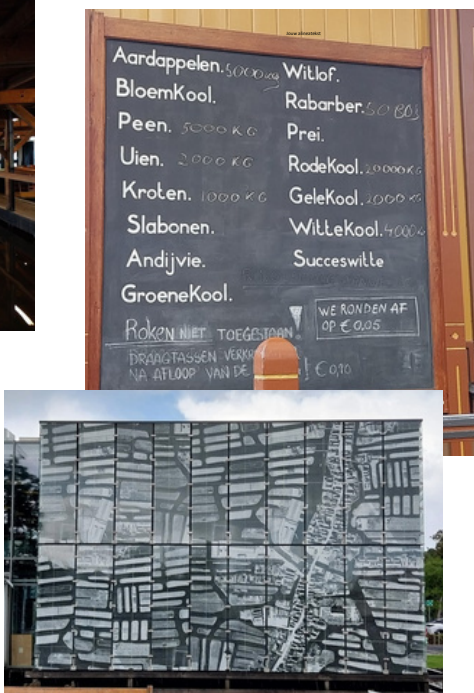 Aardappelen. 5000 kg
BloemKool.
Peen. 5000 KG
Uien. 2000 KG
Kroten. 1000 KG
Slabonen.
Andijvie.
GroeneKool.
Witlof.
Rabarber. 50 BOS
Prei.
RodeKool. 20000 KG
GeleKool. 2000 KG
WitteKool. 4000
Succeswitte
WE RONDEN AF
OP € 0,05
Roken NIET TOEGESTAAN!
DRAAGTASSEN
NA AFLOOP VAN DE ! € 0,10